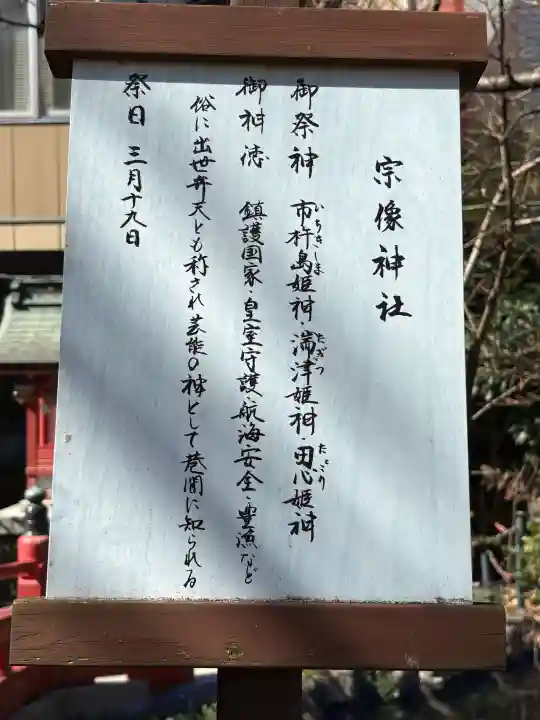 宗像神社
御祭神 市杵島姫神・湍津姫神・田心姫神
いちきしま たぎつ たごり
御神徳 鎮護国家・皇室守護・航海安全・豊漁など
俗に出世弁天とも称され芸能の神として巷間に知られる
祭日 三月十九日